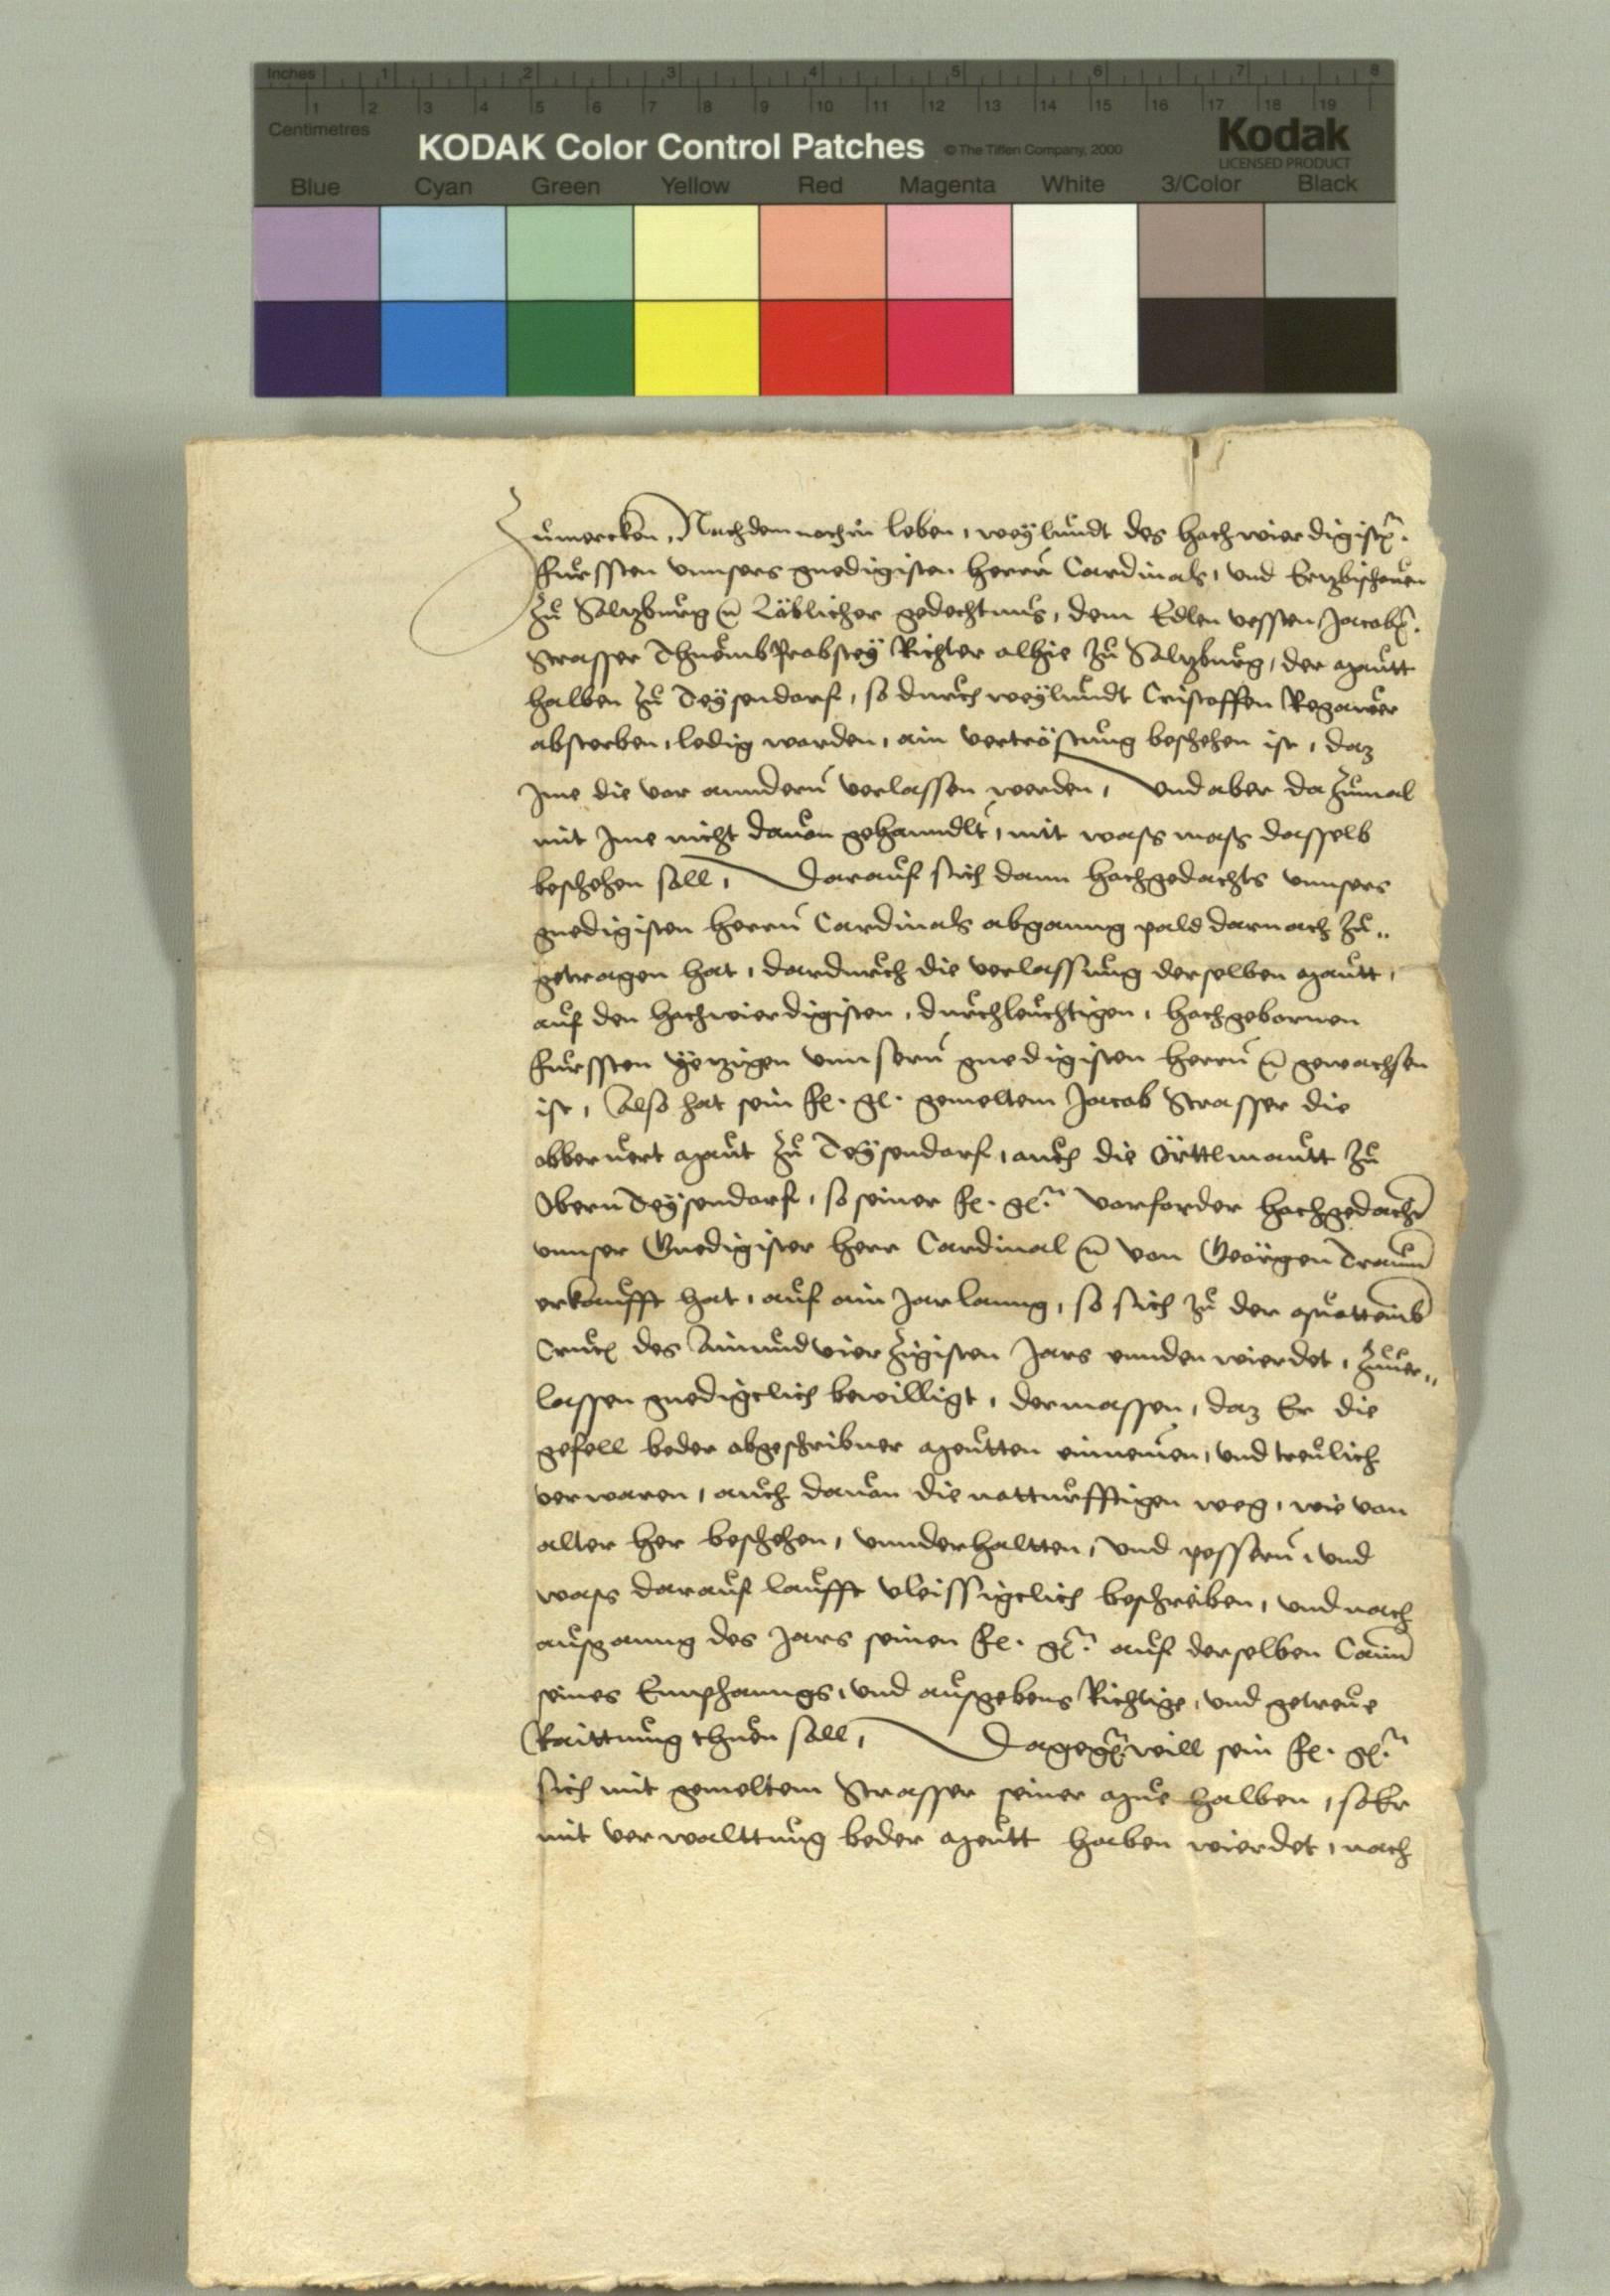 Inches 1 2 3 4 5 6 7 8
1 2 3 4 5 6 7 8 9 10 11 12 13 14 15 16 17 18 19
Centimetres
KODAK Color Control Patches © The Tiffen Company, 2000 Kodak
LICENSED PRODUCT
Blue Cyan Green Yellow Red Magenta White 3/Color Black
Zumercken, Nachdem noch in leben, weylundt des hochwierdigisten
Furssten unnsers gnedigisten herrn Cardinals, und Ertzbischouen
zu Saltzburg etc Löblicher gedechtnus, dem Edlen vessten Jacoben
Strasser Thuemb Probstey Richter alhie zu Saltzburg, der Mautt
halben zu Teysendorf, so durch weylundt Cristoffen
absterben, ledig worden, ain vertröstung beschehen ist, daz
Ime die vor anndern verlassen werden, Und aber dazumal
mit Ime nicht dauon gehanndlt, mit wass mass dasselb
beschehen soll, Darauf sich dann hochgedachts unnsers
gnedigisten herrn Cardinals abganng pald darnach zu„
getragen hat, dardurch die verlassung derselben Mautt,
auf den hochwierdigisten, durchleuchtigen, hochgebornen
Furssten yetzigen unnsern gnedigisten herrn etc gewachsen
ist, Also hat sein fl. gl. gemeltem Jacob Strasser die
obberuert Maut zu Teysendorf, auch die Örttlmautt zu
Oberndeysendorf, so seiner fl. gl. vorforder hochgedacht
unnser Gnedigister herr Cardinal etc von Geörgen
erkaufft hat, auf ain Jar lanng, so sich zu der Quottemb
Crucis des Ainundvierzigisten Jars ennden wierdet, zuuer„
lassen gnedigclich bewilligt, dermassen, daz Er die
gefell beder obgeschribner Meutten einnemen, und treulich
verwaren, auch dauon die notturfftigen weg, wie von
alter her beschehen, unnderhaltten, und pessern, und
wass darauf laufft vleissigclich beschreiben, und nach
ausganng des Jars seinen fl. gl. auf derselben Camer
seines Emphanngs, und ausgebens Richtige, und getreue
Raittung thuen soll, Dagegen will sein fl. gl.
sich mit gemeltem Strasser seiner Mue halben, so Er
mit verwalttung beder Meutt haben wierdet, nach